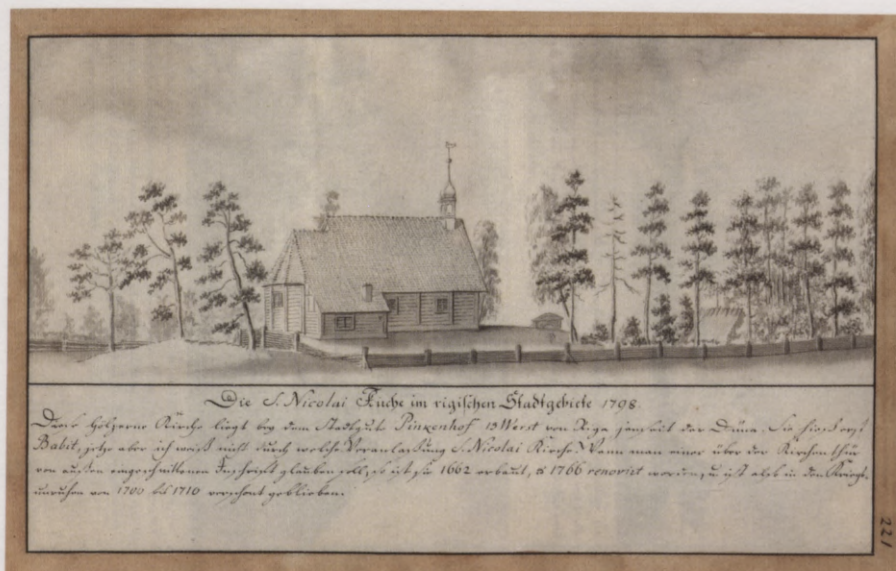 Die S. Nicolai Kirche im rigischen Stadtgebiete 1798.
Diese hölzerne Kirche liegt bey dem Stadtgute Pinkenhof 15 Werst von Riga jenseit der Düna. Sie hieß erst
Babit, jetzt aber ich weiß nicht durch welche Veranlassung S. Nicolai Kirche. Wenn man einer über der Kirchenthür
von außen eingeschnittenen Inschrift glauben soll, so ist sie 1662 erbaut, u 1766 renovirt worden, u ist also in den Kriegs-
unruhen von 1700 bis 1710 verschont geblieben.
221